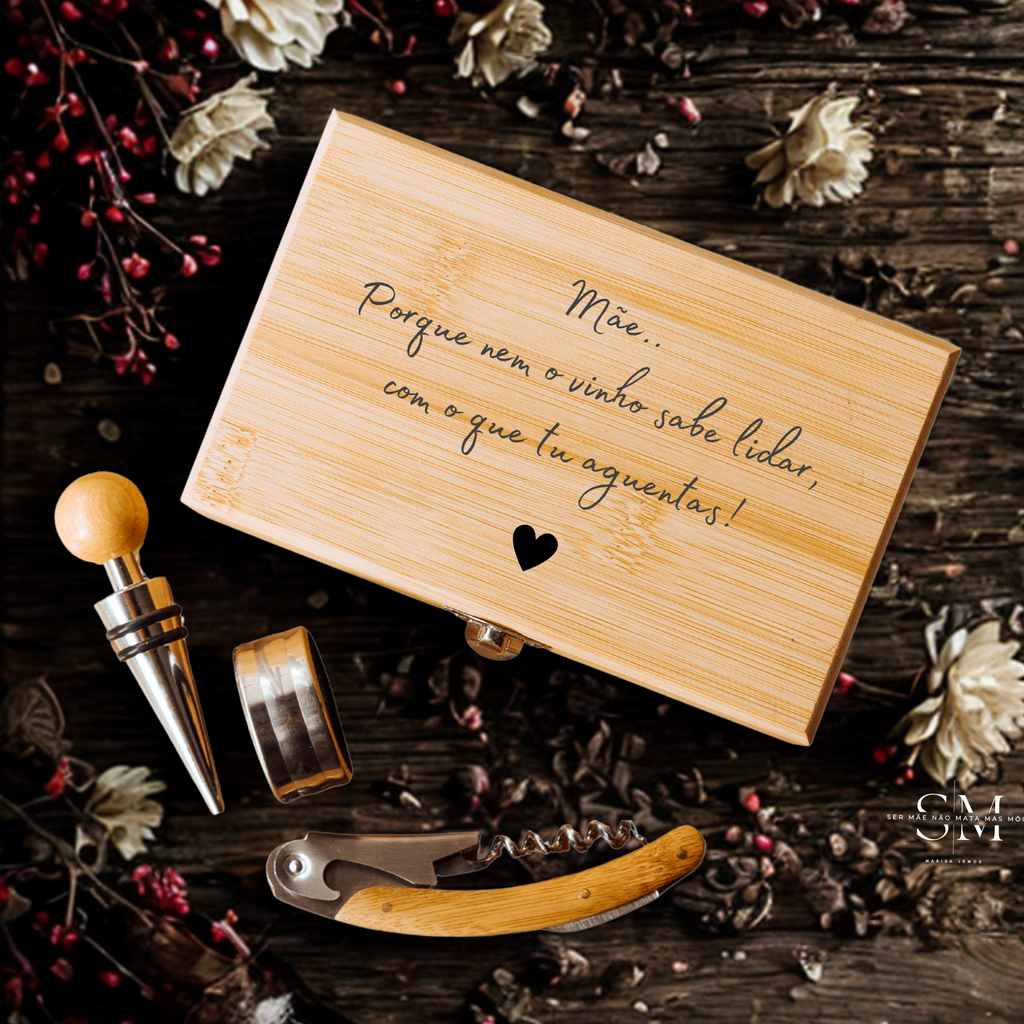 Mãe..
Porque nem o vinho sabe lidar,
com o que tu aguentas!
SM
SER MÃE NÃO MATA MAS MÓI
MARISA LEMOS